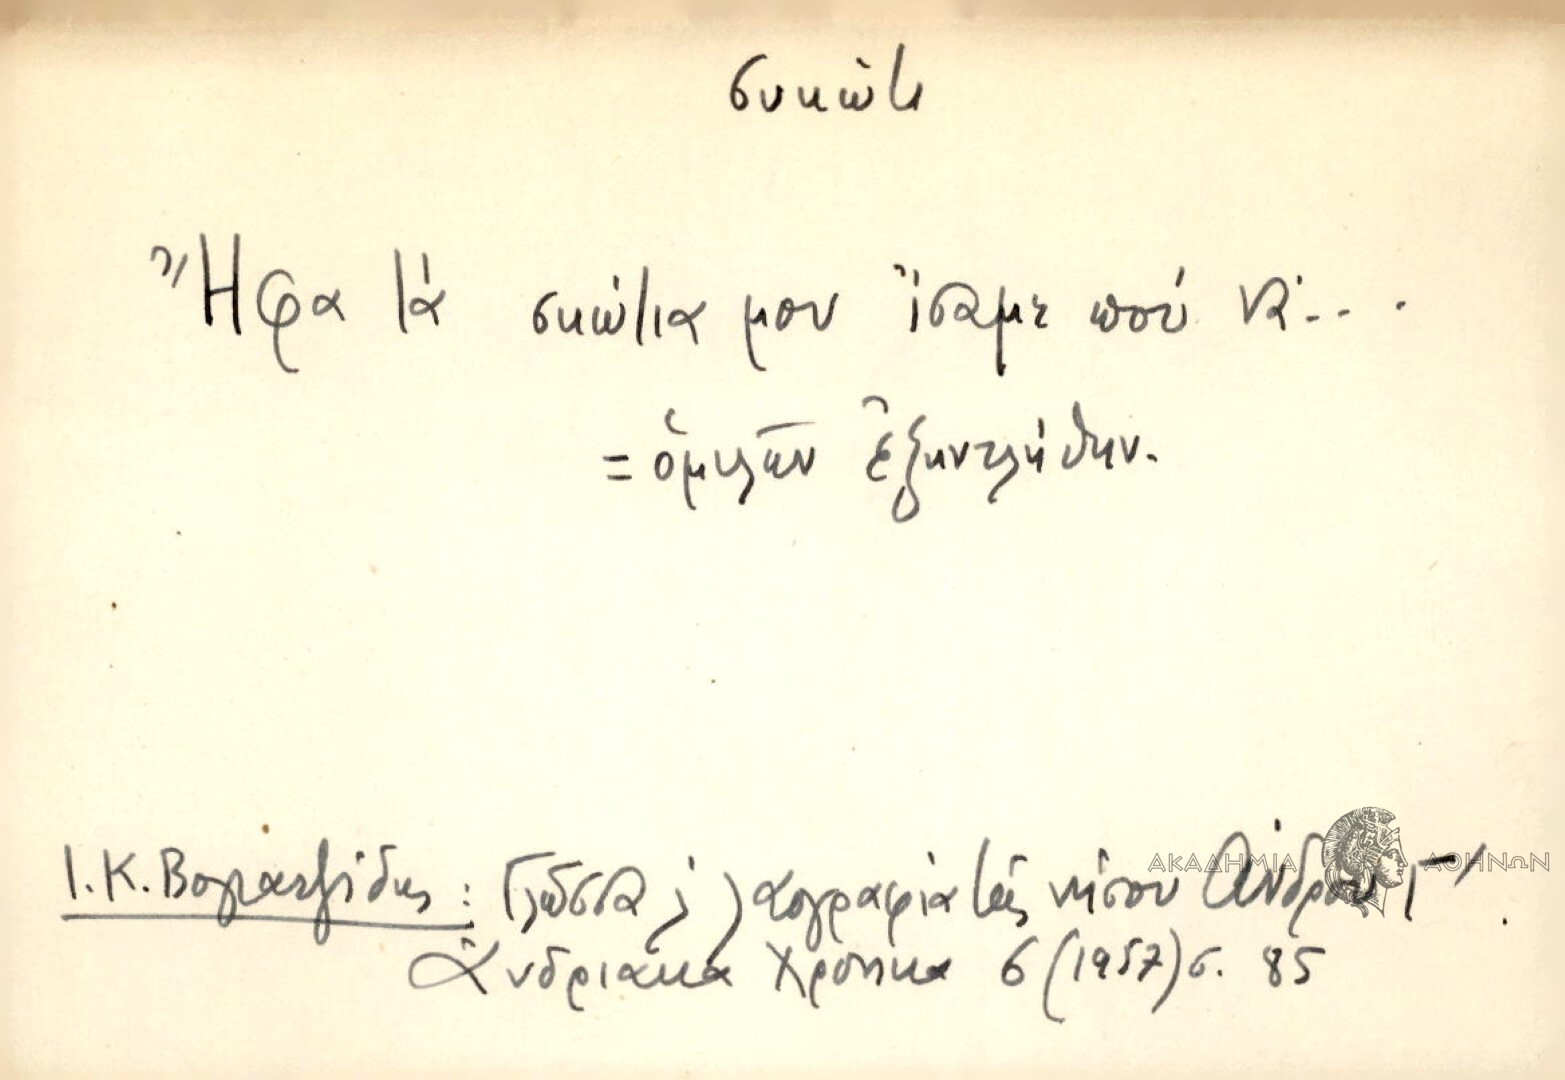 συκώτι
Ἤφρα τὰ σκώτια μου ἴσαμε πού νά....
= ὁμιλῶν ἐξηντλήθην.
Ι. Κ. Βογιατζίδης: Γλῶσσα κ̀ λαογραφία τῆς νήσου Ἄνδρου, Γ'.
Ἀνδριακὰ Χρονικὰ 6 (1957) σ. 85
ΑΚΑΔΗΜΙΑ ΑΘΗΝΩΝ